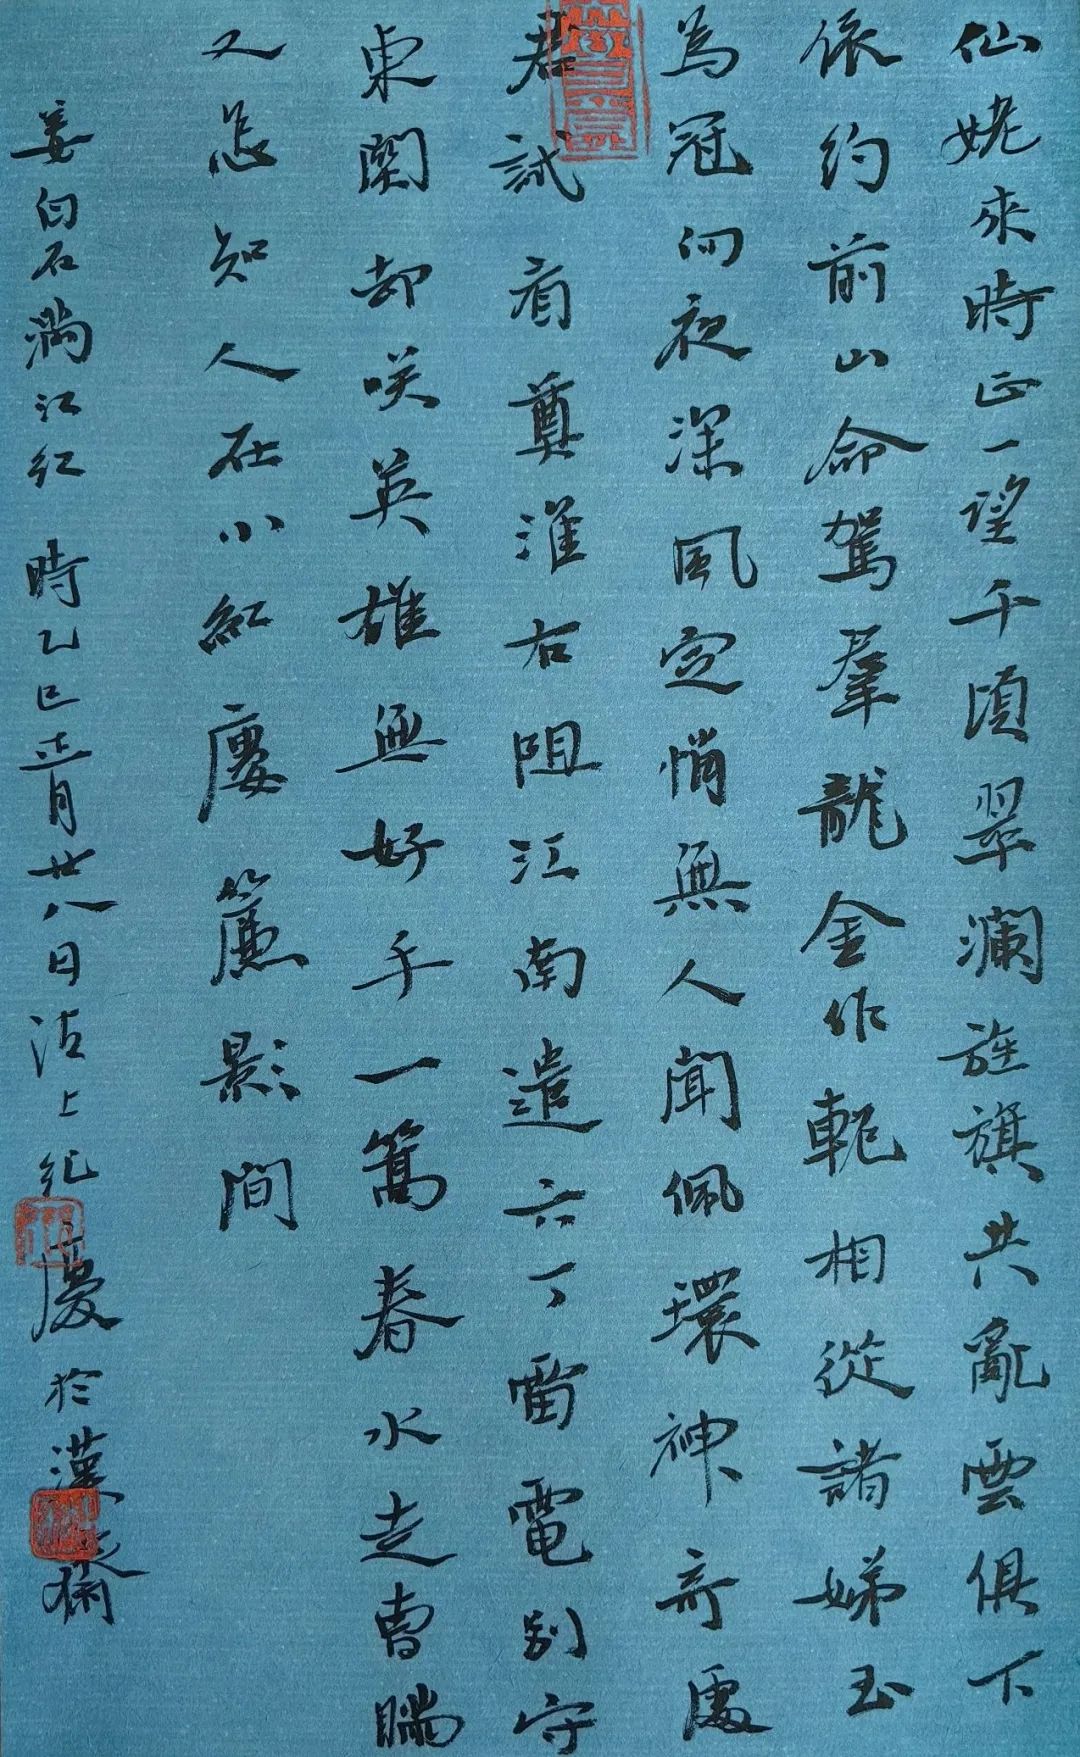 仙姥來時正一望千頃翠瀾旌旗共亂雲俱下
依約前山命駕羣龍金作軛相從諸娣玉
為冠向夜深風定悄無人聞佩環神奇處
君試看奠淮右阻江南遣六丁雷電別守
東關却咲英雄無好手一篙春水走曹瞞
又怎知人在小紅廔簾影間
姜白石滿江紅 時乙巳正月廿八日沽上紀慶於漢